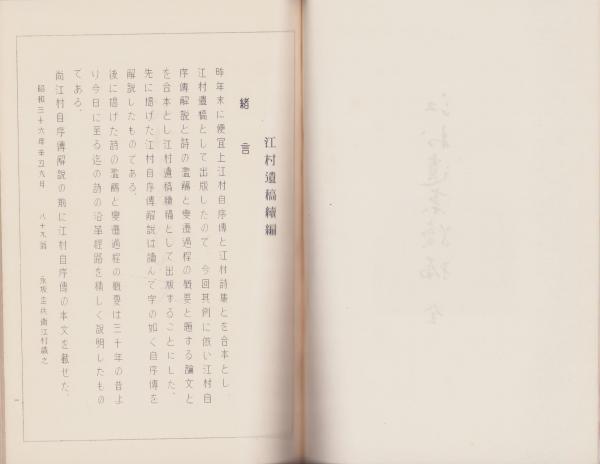 江村遺稿續編
緒言
昨年末に便宜上江村自序傳と江村詩集とを合本とし
江村遺稿として出版したので 今回其例に倣い江村自
序傳解説と詩の濫觴と變遷過程の概要と題する論文と
を合本とし江村遺稿續稿として出版することにした、
先に揭げた江村自序傳解説は讀んで字の如く自序傳を
解説したものである、
後に揭げた詩の濫觴と變遷過程の概要は三十年の昔よ
り今日に至る迄の詩の沿革經路を精しく説明したもの
てある、
尚江村自序傳解説の前に江村自序傳の本文を載せた、
昭和三十六年辛丑九月 八十九翁 永坂圭兵衛江村識之